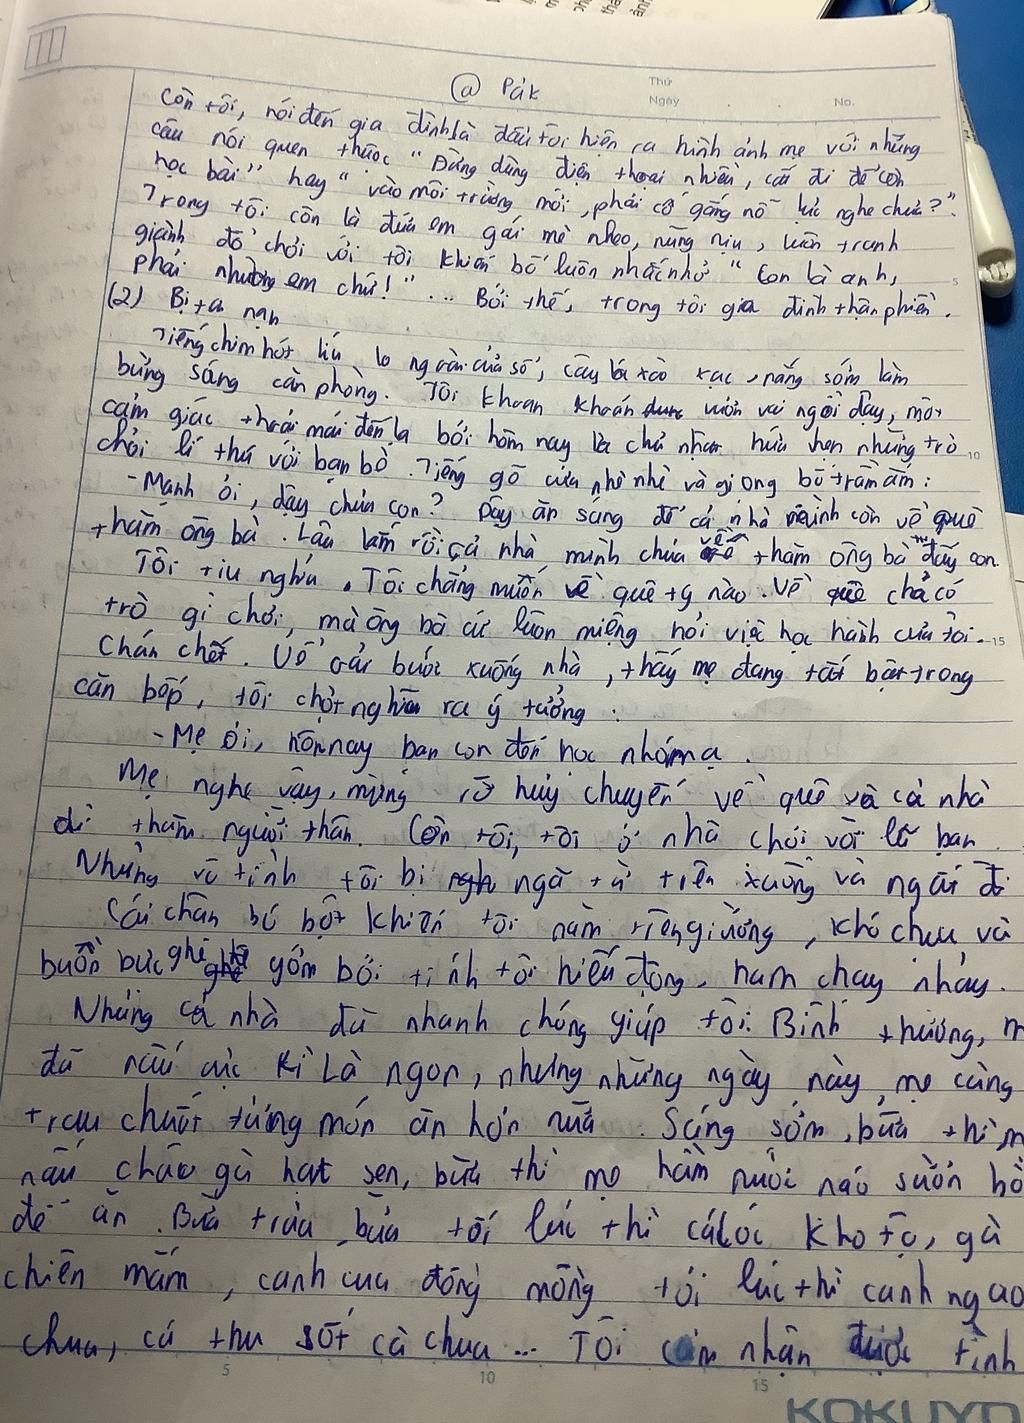 @ Pák
Thứ
Ngày . . No.
Còn tôi, nói đến gia đình là đầu tôi hiện ra hình ảnh mẹ với những
câu nói quen thuộc "Đừng dùng điện thoại nhiều, cất đi để còn
học bài" hay "vào môi trường mới, phải cố gắng nỗ lực nghe chưa?".
Trong tôi còn là đứa em gái mè nheo, nũng nịu, luôn tranh
giành đồ chơi với tôi khiến bố luôn nhắc nhở "Con là anh,
phải nhường em chứ!"... Bởi thế, trong tôi gia đình thân phiền.
(2) Bị tai nạn
Tiếng chim hót líu lo ngoài cửa sổ, cây lá xào xạc, nắng sớm làm
bừng sáng căn phòng. Tôi khoan khoái vươn vai ngồi dậy, một
cảm giác thoải mái đến lạ bởi hôm nay là chủ nhật hứa hẹn những trò
chơi lí thú với bạn bè. Tiếng gõ cửa nhè nhẹ và giọng bố trầm ấm:
- Mạnh ơi, dậy chưa con? Dậy ăn sáng để cả nhà mình còn về quê
thăm ông bà. Lâu lắm rồi cả nhà mình chưa về thăm ông bà đấy con.
Tôi tiu nghỉu. Tôi chẳng muốn về quê tý nào. Về quê chả có
trò gì chơi, mà ông bà cứ luôn miệng hỏi việc học hành của tôi.
Chán chết. Uể oải bước xuống nhà, thấy mẹ đang tất bật trong
căn bếp, tôi chợt nghĩ ra ý tưởng:
- Mẹ ơi, hôm nay bạn con đến học nhóm ạ.
Mẹ nghe vậy, mừng rỡ hủy chuyến về quê và cả nhà
đi thăm người thân. Còn tôi, tôi ở nhà chơi với lũ bạn.
Nhưng vô tình tôi bị ngã từ trên xuống và ngất đi
Cái chân bó bột khiến tôi nằm trên giường, khó chịu và
buồn bực ghê gớm bởi tính tôi hiếu động, ham chạy nhảy.
Nhưng cả nhà đã nhanh chóng giúp tôi. Bình thường, m
đã nấu cực kì là ngon, nhưng những ngày này, mẹ càng
trau chuốt từng món ăn hơn nữa. Sáng sớm, bữa thì m
nấu cháo gà hạt sen, bữa thì mẹ hầm nước sườn bò
để ăn. Bữa trưa, bữa tối lúc thì cá lóc kho tộ, gà
chiên mắm, canh cua đồng mồng tơi lúc thì canh ngao
chua, cá thu sốt cà chua... Tôi cảm nhận được tình
5
10
15
5 10 15
KOKUYO